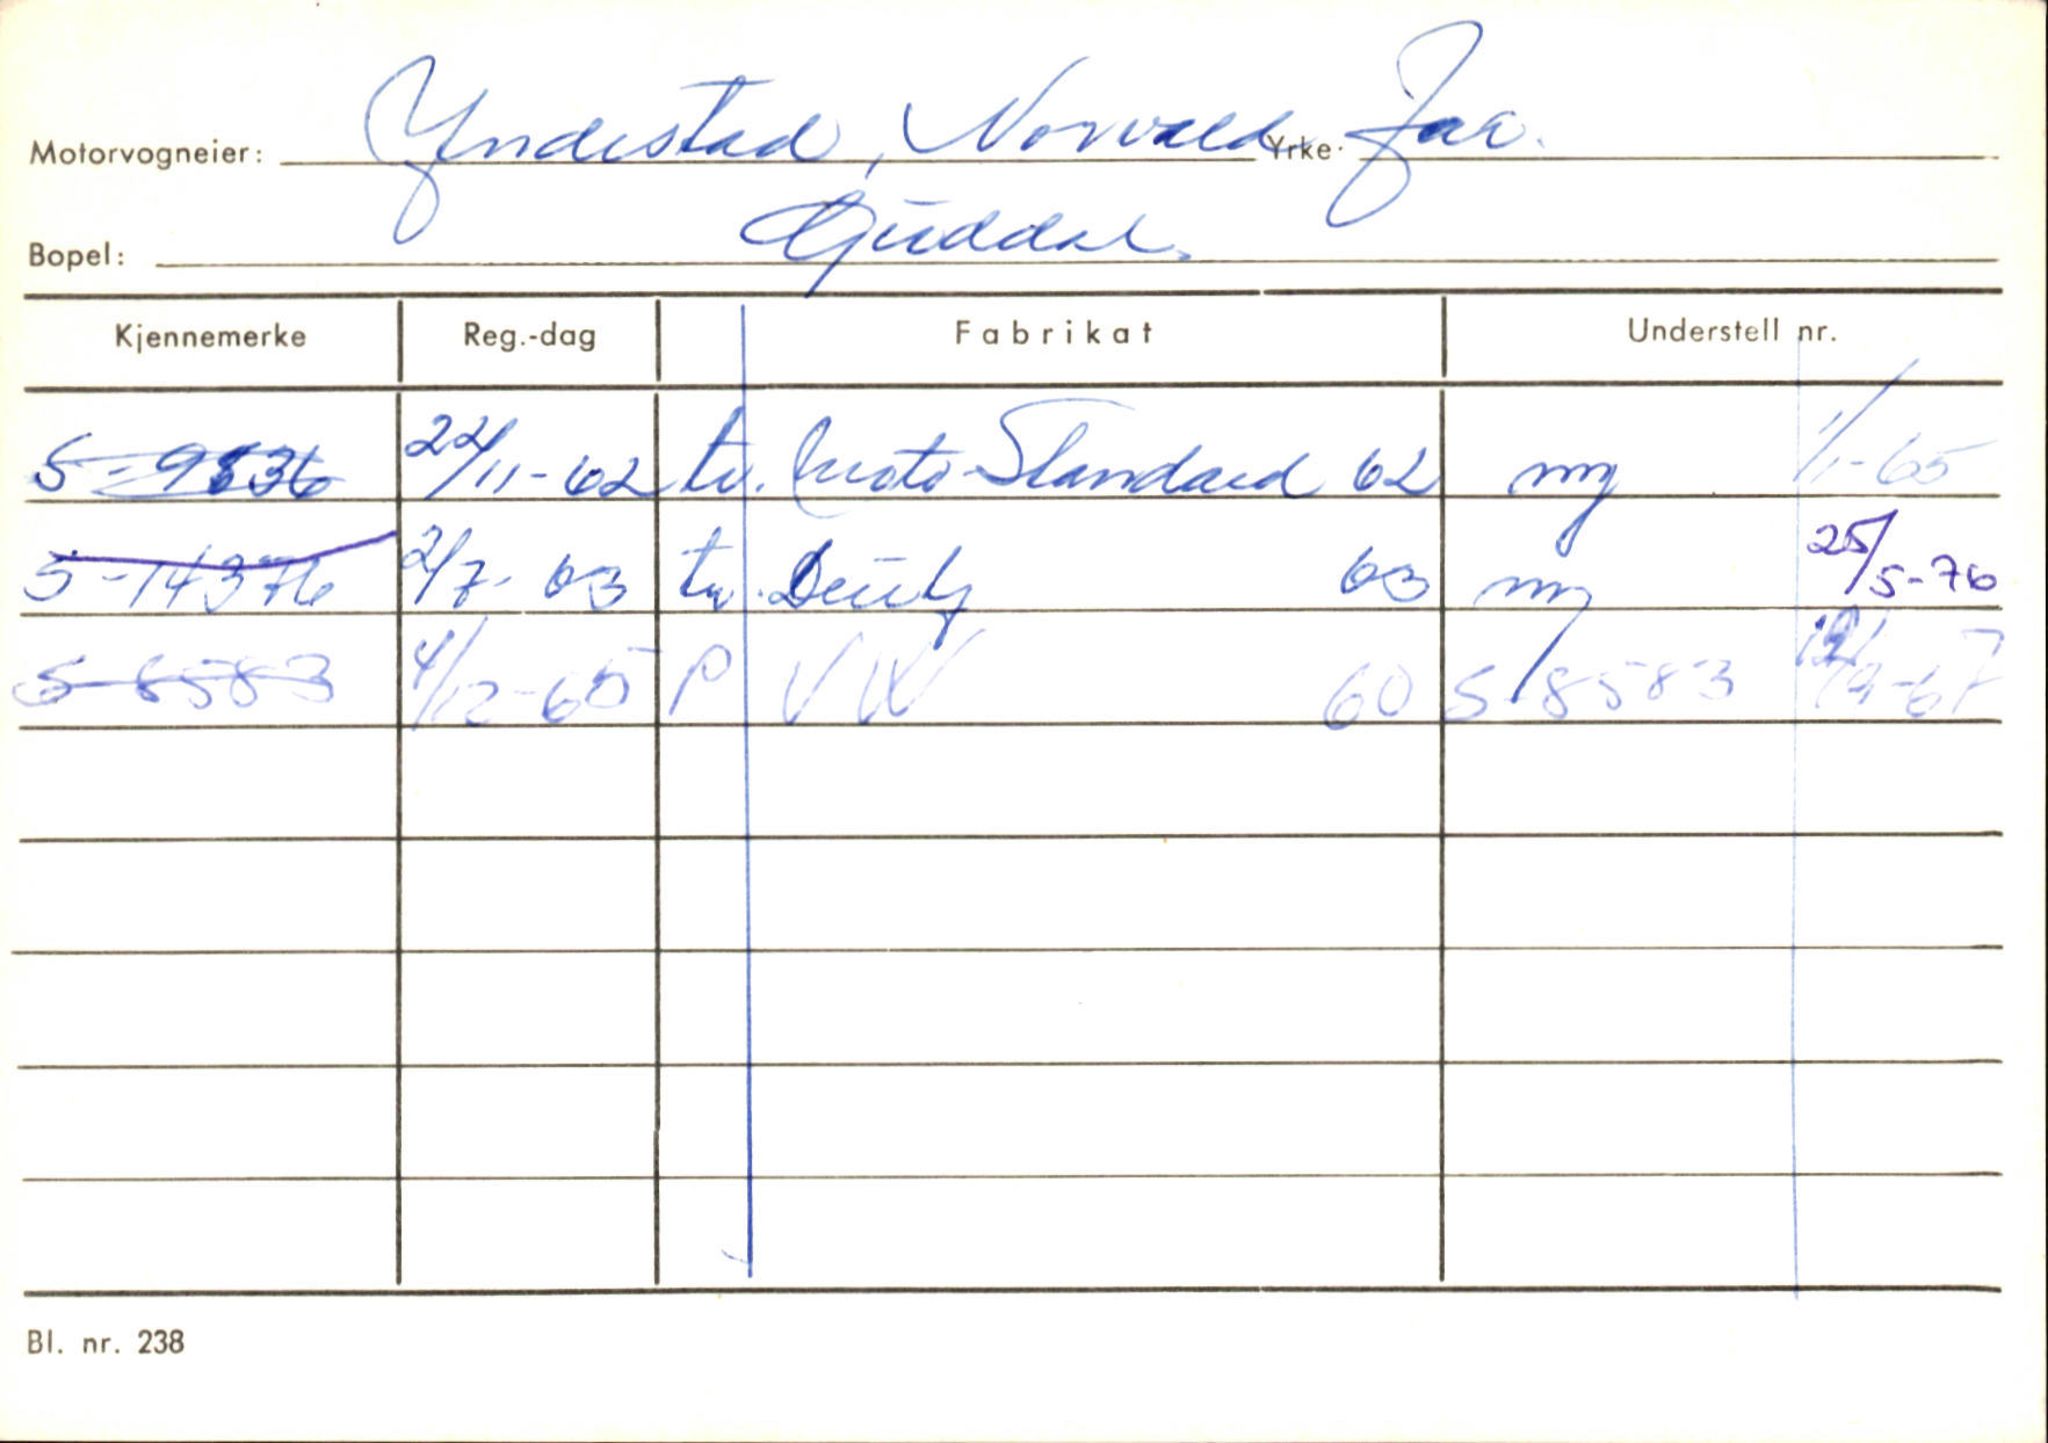 Motorvogneier: Yndestad, Norvald Yrke: Jar.
Bopel: Guddal.
Kjennemerke Reg.-dag Fabrikat Understell nr.
S-9836 22/11-62 tv. Moto-Standard 62 ny 1/1-65
S-14376 2/7-63 tv. Deutz 63 ny 25/5-76
S-8583 4/12-65 P VW 60 S/8583 12/9-67
Bl. nr. 238